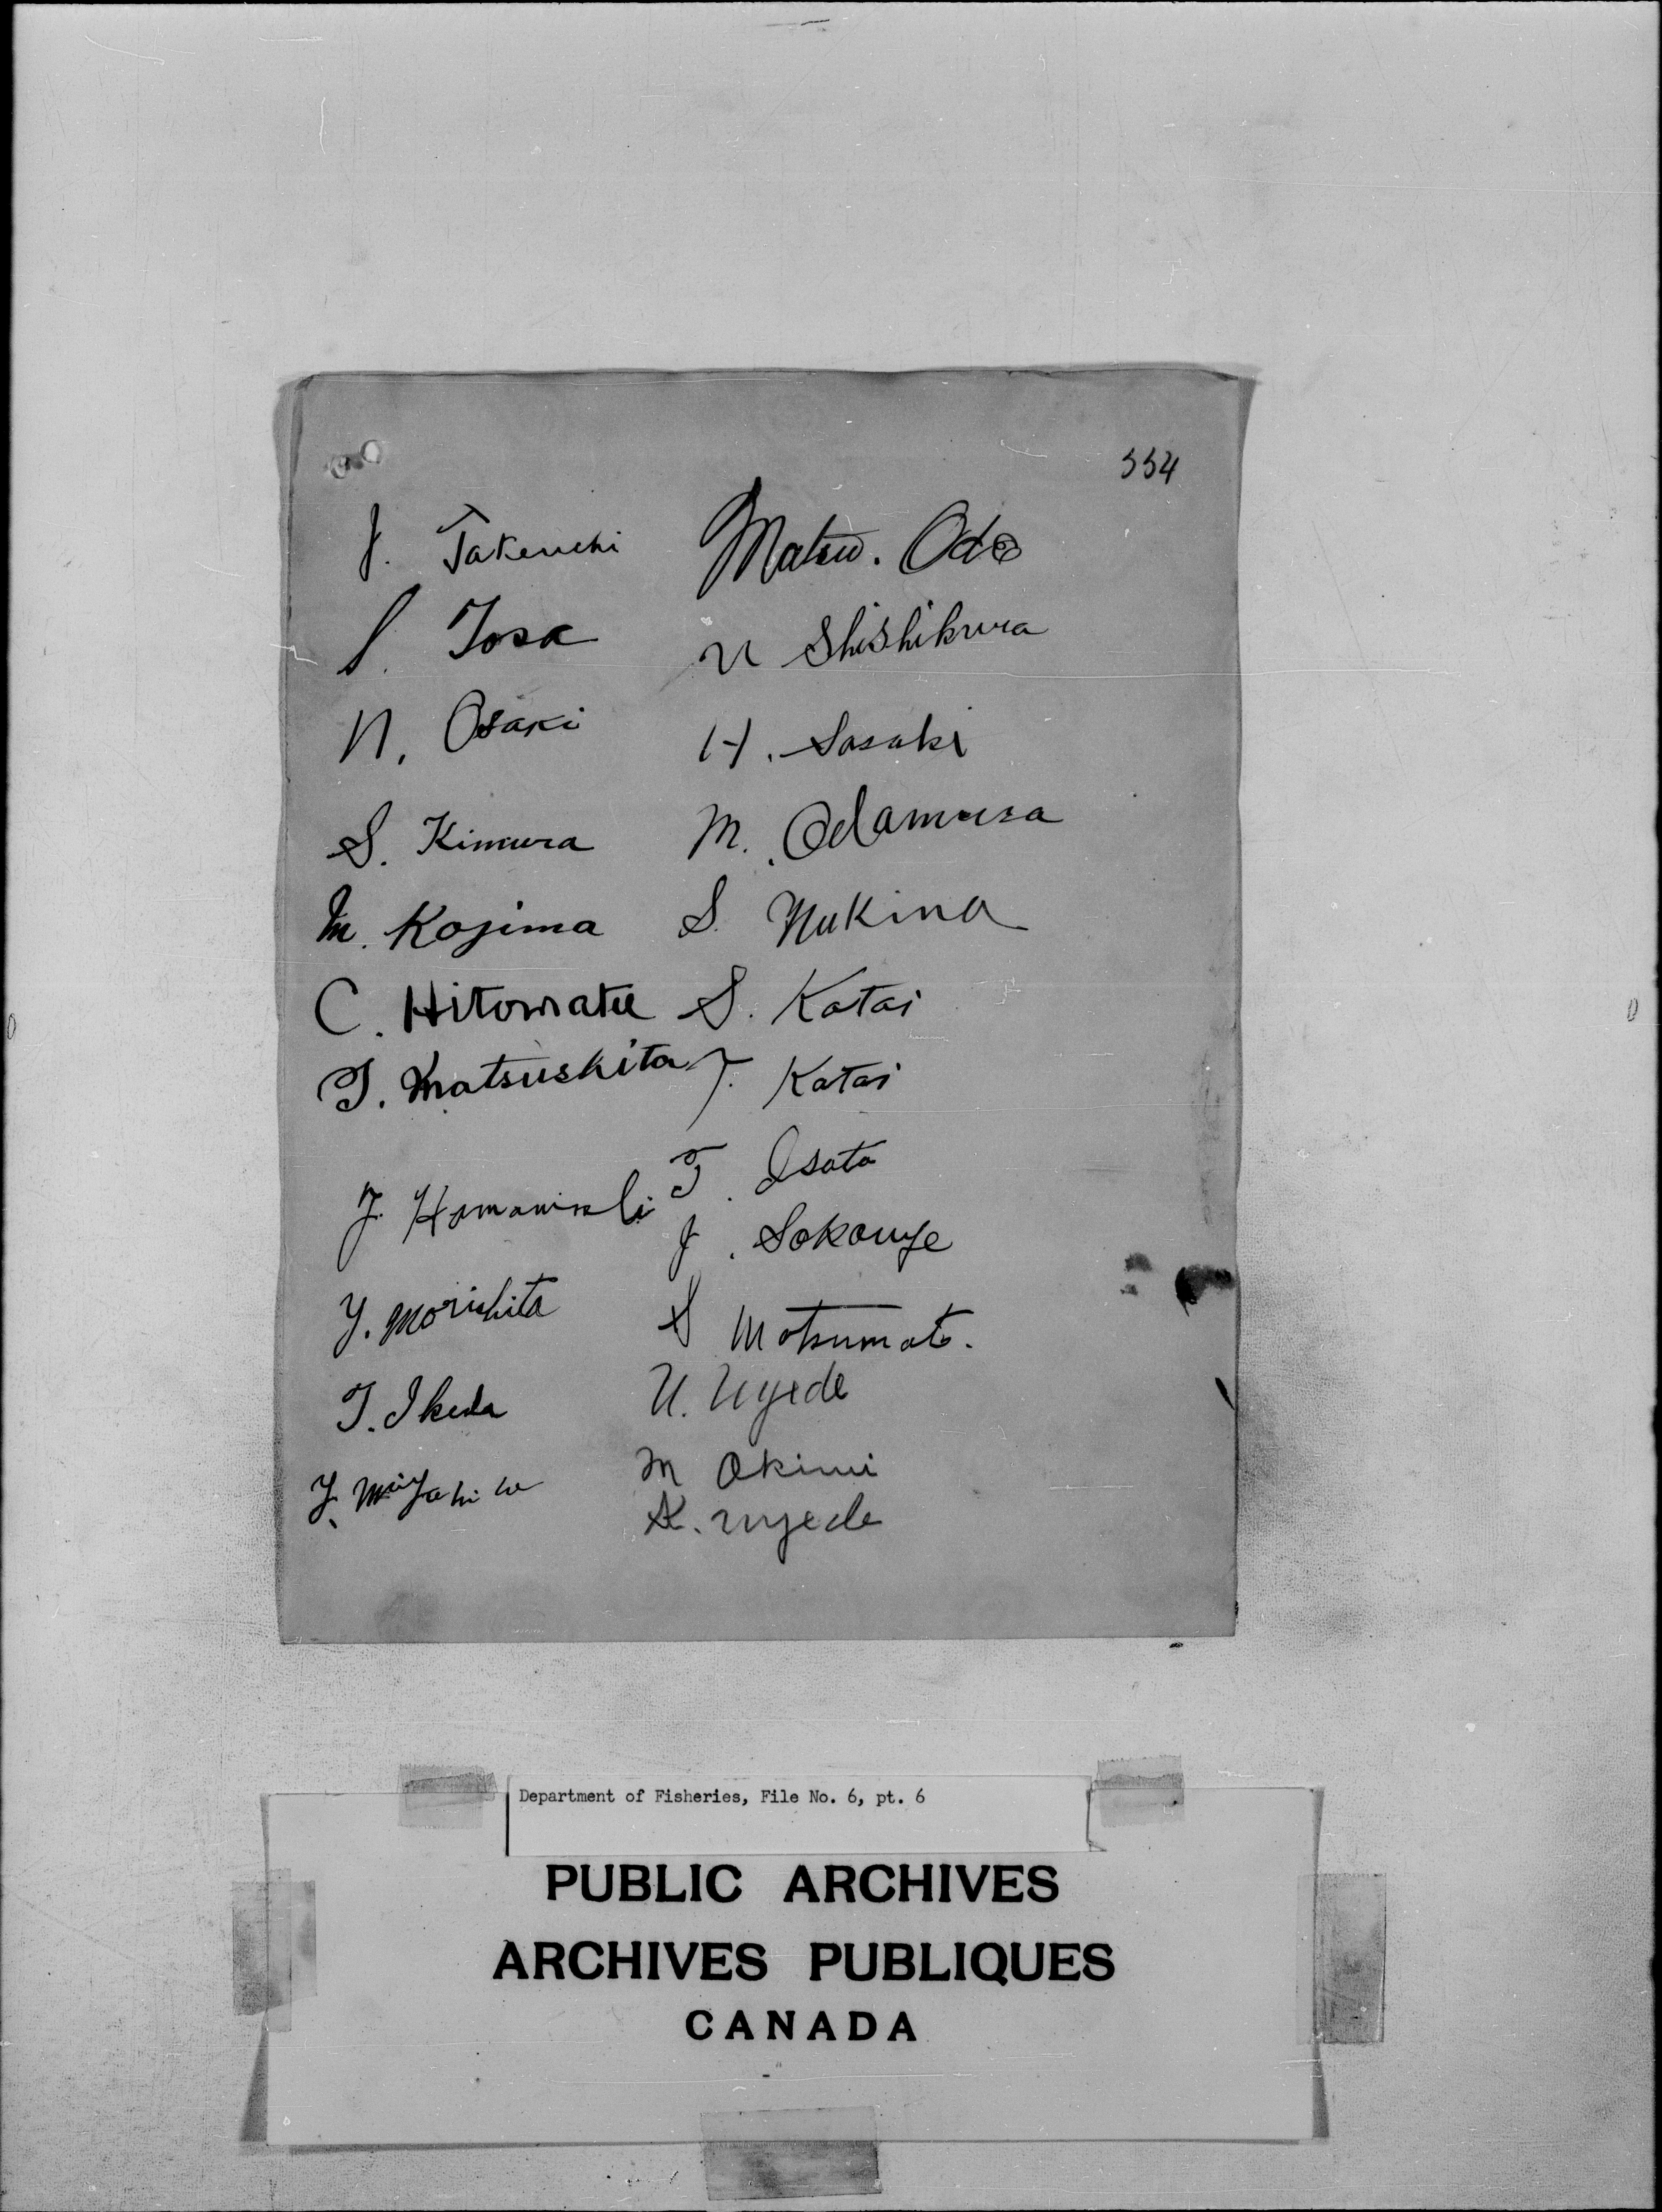 554
J. Takeuchi
S. Tosa
N. Osaki
S. Kimura
M. Kojima
C. Hitomatu
T. Matsushita
J. Hamanishi
Y. Morishita
T. Ikeda
Y.
Matsu. Odo
N Shishikura
H. Sasaki
M. Odamura
S. Nukina
S. Katai
T. Katai
T. Isata
J. Sokouye
S Motsumoto.
U. Uyede
M Okimi
K. Uyede
Department of Fisheries, File No. 6, pt. 6
PUBLIC ARCHIVES
ARCHIVES PUBLIQUES
CANADA